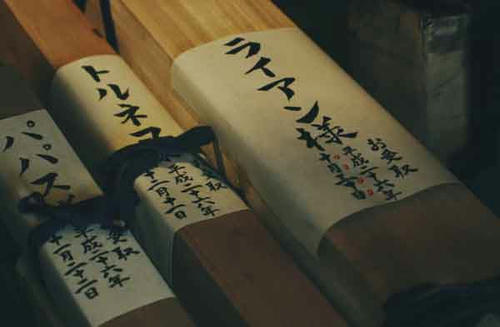 ライアン様
お受取
平成二十六年
十月二十日
トルネコ
受取
平成二十六年
十一月十日
パパス
受取
平成二十六年
十一月二十二日